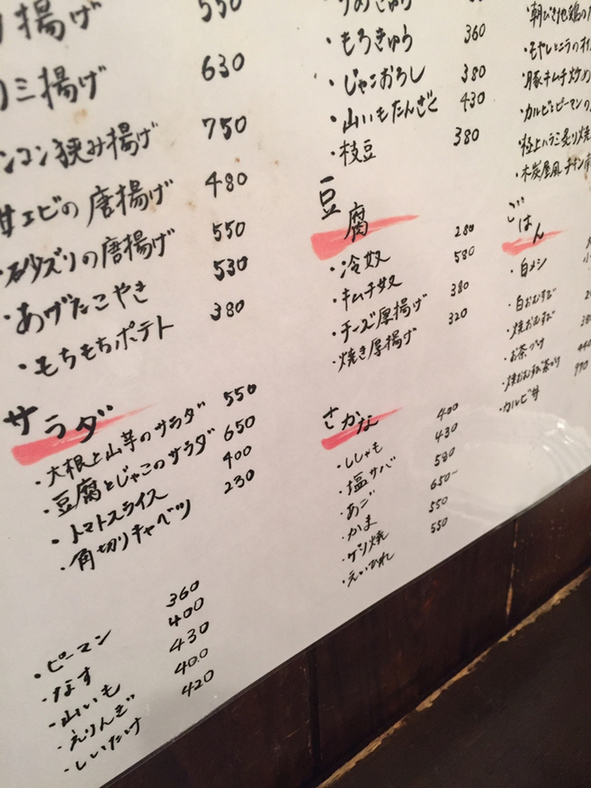 揚げ 550
ミ揚げ 630
ンコン挟み揚げ 750
甘エビの唐揚げ 480
・砂ズリの唐揚げ 550
・あげたこやき 530
・もちもちポテト 380
サラダ
・大根と山芋のサラダ 550
・豆腐とじゃこのサラダ 650
・トマトスライス 400
・角切りキャベツ 230
・ピーマン 360
・なす 400
・山いも 430
・えりんぎ 400
・しいたけ 420
・もろきゅう 360
・じゃこおろし 380
・山いもたんざく 430
・枝豆 380
豆腐
・冷奴 280
・キムチ奴 580
・チーズ厚揚げ 380
・焼き厚揚げ 320
さかな
・ししゃも 400
・塩サバ 430
・あご 580
・かま 650~
・ゲソ焼 550
・えいひれ 550
・朝びき地鶏の
・もやしとニラの
・豚キムチ炒め
・カルビとピーマンの
・極上ハラミ炙り焼
・木炭屋風チキン南
ごはん
・白メシ
・白おむすび
・焼おむすび
・お茶づけ
・焼おむすび茶づけ
・カルビ丼